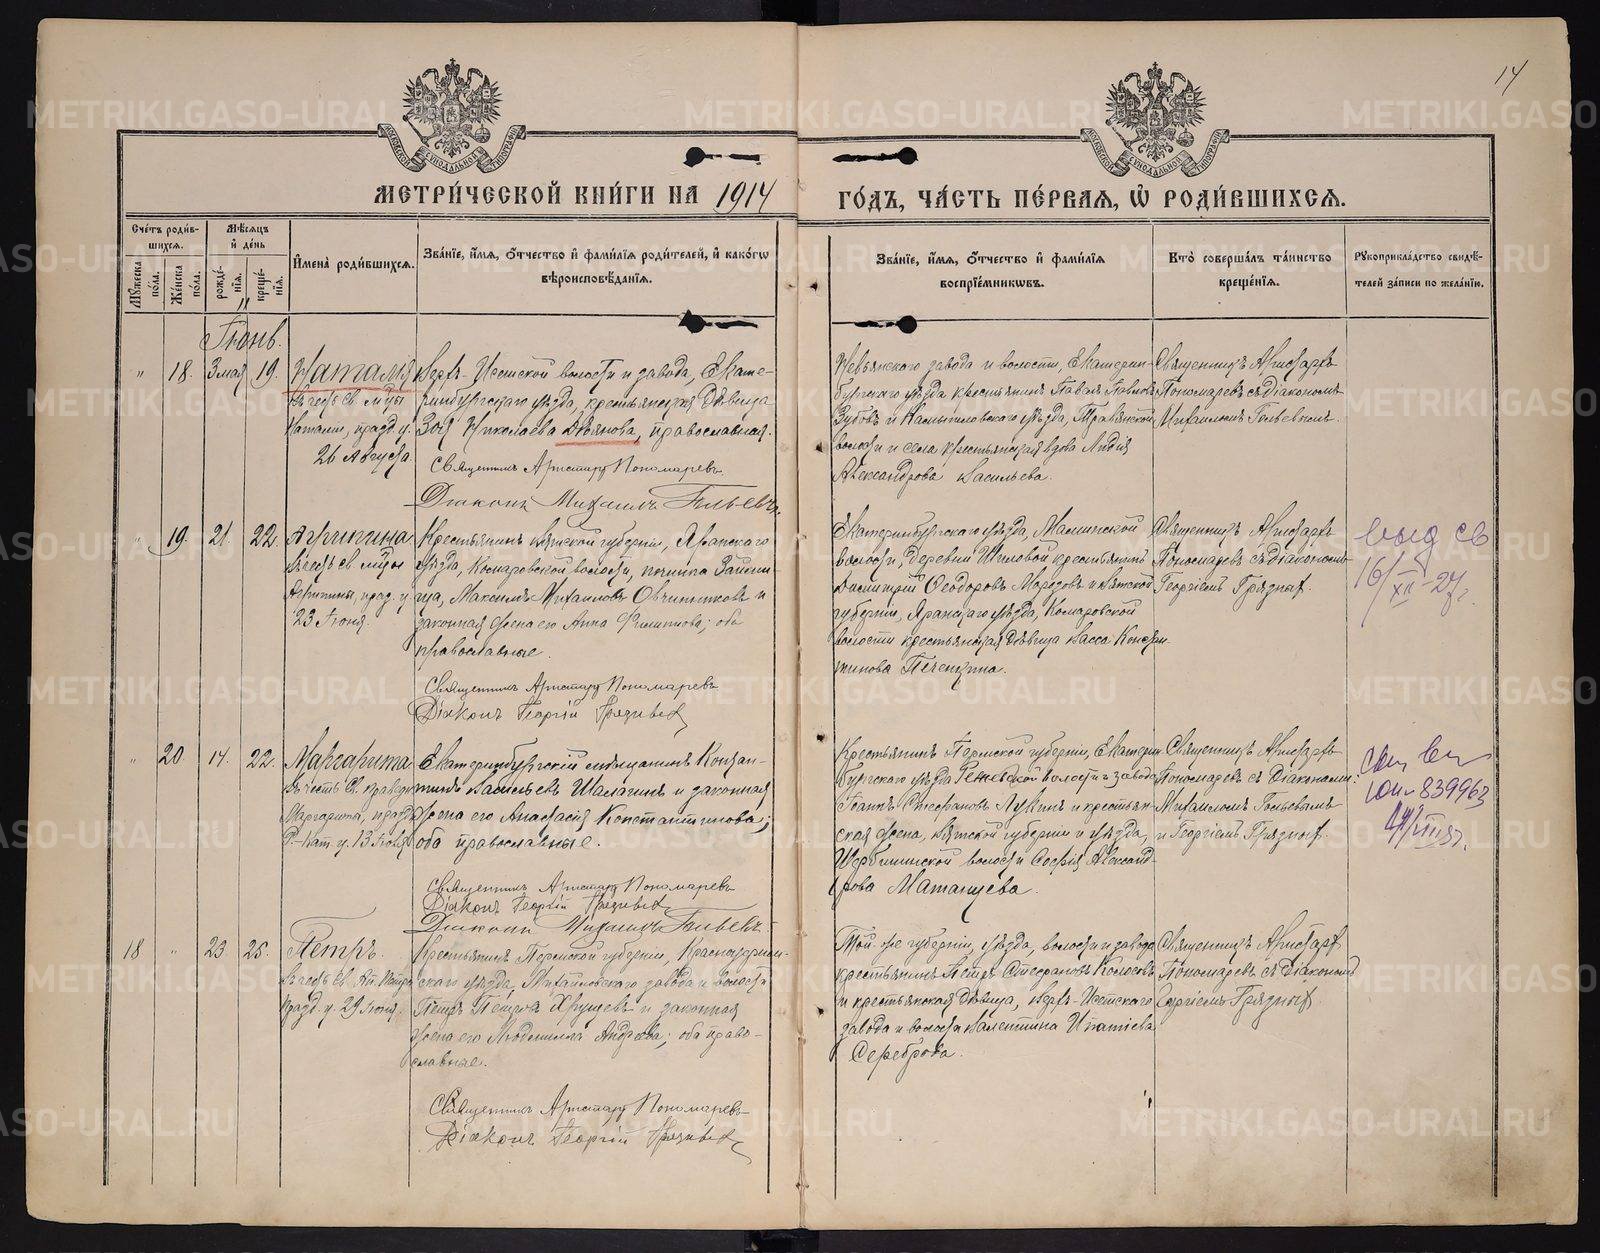 14
МОСКОВСКОЙ СУНОДАЛЬНОЙ ТИПОГРАФІИ
МОСКОВСКОЙ СУНОДАЛЬНОЙ ТИПОГРАФІИ
МЕТРИ́ЧЕСКОЙ КНИ́ГИ НА 1914
ГО́ДЪ, ЧА́СТЬ ПЕ́РВАЯ, Ѿ РОДИ́ВШИХСЯ.
Сче́тъ роди́в-
шихся.
Мꙋ́жеска по́ла.
Же́нска по́ла.
Мѣ́сяцъ
и҆ де́нь
рожде́-
нїя.
креще́-
нїя.
И҆мена̀ роди́вшихся.
Зва́нїе, и҆́мя, ѻ҆́тчество и҆ фами́лїя роди́телей, и҆ како́гѡ
вѣроисповѣ́данїя.
Зва́нїе, и҆́мя, ѻ҆́тчество и҆ фами́лїя
воспрїе́мникѡвъ.
Кто̀ соверша́лъ та́инство
креще́нїя.
Рꙋкоприкла́дство свидѣ́-
телей за́писи по жела́нїю.
Іюнь.
" 18. 3 мая 19. Наталія
въ честь св. мцы
Наталіи, празд. у.
26 Августа
Верхъ-Исетской волости и завода, Екате-
ринбургскаго уѣзда, крестьянская дѣвица
Зоя Николаева Дроянова, православная.
Священникъ Аристархъ Пономаревъ
Діаконъ Михаилъ Гольевъ
Невьянского завода и волости, Екатерин-
бургскаго уѣзда крестьянинъ Павелъ Павловъ
Зубовъ и Камышловскаго уѣзда, Травянской
волости и села крестьянская вдова Лидія
Александрова Васильева.
Священникъ Аристархъ
Пономаревъ съ діакономъ
Михаиломъ Гольевымъ.
" 19. 21. 22. Агриппина
въ честь св. мцы
Агриппины, празд. у
23 Іюня.
Крестьянинъ Вятской губерніи, Яранскаго
уѣзда, Комаровской волости, починка
Максимъ Михаиловъ Овчинниковъ и
законная жена его Анна Филиппова; оба
православные.
Священникъ Аристархъ Пономаревъ
Діаконъ Георгій Грязныхъ
Екатеринбургскаго уѣзда, Маминской
волости, деревни Шиловой крестьянинъ
Димитрій Ѳеодоровъ Морозовъ и Вятской
губерніи, Яранскаго уѣзда, Комаровской
волости крестьянская дѣвица Васса Констан-
тинова Печенкина.
Священникъ Аристархъ
Пономаревъ съ діакономъ
Георгіемъ Грязныхъ.
выд св
16/XII-27г.
" 20. 14. 22. Маргарита
въ честь св.
Маргариты, празд.
13 Іюля
Екатеринбургскій мѣщанинъ Констан-
тинъ Васильевъ Шалагинъ и законная
жена его Анастасія Константинова;
оба православные.
Священникъ Аристархъ Пономаревъ
Діаконъ Георгій Грязныхъ
Діаконъ Михаилъ Гольевъ.
Крестьянинъ Пермской губерніи, Екатерин-
бургскаго уѣзда волости и завода
Іоаннъ Стефановъ Лукинъ и крестьян-
ская жена, Вятской губерніи и уѣзда,
волости Софія Александ-
рова Матанцева.
Священникъ Аристархъ
Пономаревъ съ діаконами:
Михаиломъ Гольевымъ
и Георгіемъ Грязныхъ.
839963
18 " 23 25. Петръ.
въ честь св. Ап. Петра
празд. у. 29 Іюня.
Крестьянинъ Пермской губерніи, Красноуфим-
скаго уѣзда, Михайловскаго завода и волости
Петръ Петровъ Хрущевъ и законная
жена его Людмила Андреева; оба право-
славные.
Священникъ Аристархъ Пономаревъ
Діаконъ Георгій Грязныхъ
Той-же губерніи, уѣзда, волости и завода
крестьянинъ Петръ Стефановъ Колосовъ
и крестьянская дѣвица, Верхъ-Исетскаго
завода и волости Валентина Ипатіева
Сереброва.
Священникъ Аристархъ
Пономаревъ съ діакономъ
Георгіемъ Грязныхъ.
METRIKI.GASO-URAL.RU